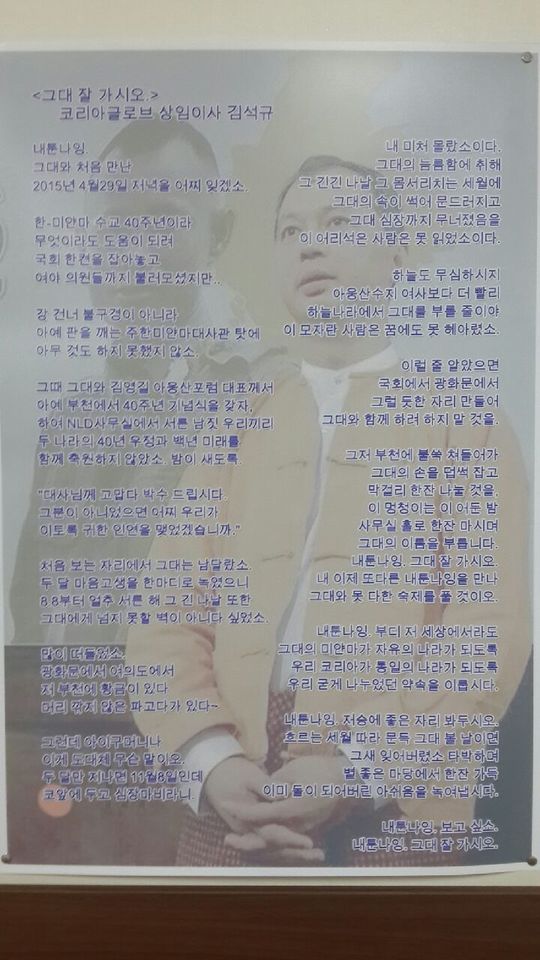 <그대 잘 가시오.>
코리아글로브 상임이사 김석규
내툰나잉.
그대와 처음 만난
2015년 4월29일 저녁을 어찌 잊겠소.
한-미얀마 수교 40주년이라
무엇이라도 도움이 되려
국회 한켠을 잡아놓고
여야 의원들까지 불러모셨지만..
강 건너 불구경이 아니라
아예 판을 깨는 주한미얀마대사관 탓에
아무 것도 하지 못했지 않소.
그때 그대와 김영길 아웅산포럼 대표께서
아예 부천에서 40주년 기념식을 갖자,
하여 NLD사무실에서 서른 남짓 우리끼리
두 나라의 40년 우정과 백년 미래를
함께 축원하지 않았소. 밤이 새도록.
"대사님께 고맙다 박수 드립시다.
그분이 아니었으면 어찌 우리가
이토록 귀한 인연을 맺었겠습니까."
처음 보는 자리에서 그대는 남달랐소.
두 달 마음고생을 한마디로 녹였으니
8.8부터 얼추 서른 해 그 긴 나날 또한
그대에게 넘지 못할 벽이 아니다 싶었소.
많이 떠들었소.
광화문에서 여의도에서
저 부천에 황금이 있다
머리 깎지 않은 파고다가 있다~
그런데 아이구머니나
이게 도대체 무슨 말이오.
두 달만 지나면 11월8일인데
코앞에 두고 심장마비라니.
내 미처 몰랐소이다.
그대의 늠름함에 취해
그 긴긴 나날 그 몸서리치는 세월에
그대의 속이 썩어 문드러지고
그대 심장까지 무너졌음을
이 어리석은 사람은 못 읽었소이다.
하늘도 무심하시지
아웅산수지 여사보다 더 빨리
하늘나라에서 그대를 부를 줄이야
이 모자란 사람은 꿈에도 못 헤아렸소.
이럴 줄 알았으면
국회에서 광화문에서
그럴 듯한 자리 만들어
그대와 함께 하려 하지 말 것을.
그저 부천에 불쑥 쳐들어가
그대의 손을 덥썩 잡고
막걸리 한잔 나눌 것을,
이 멍청이는 이 어둔 밤
사무실 홀로 한잔 마시며
그대의 이름을 부릅니다.
내툰나잉. 그대 잘 가시오.
내 이제 또다른 내툰나잉을 만나
그대와 못 다한 숙제를 풀 것이오.
내툰나잉. 부디 저 세상에서라도
그대의 미얀마가 자유의 나라가 되도록
우리 코리아가 통일의 나라가 되도록
우리 굳게 나누었던 약속을 이룹시다.
내툰나잉. 저승에 좋은 자리 봐두시오.
흐르는 세월 따라 문득 그대 볼 날이면
그새 잊어버렸소 타박하며
볕 좋은 마당에서 한잔 가득
이미 돌이 되어버린 아쉬움을 녹여냅시다.
내툰나잉. 보고 싶소.
내툰나잉. 그대 잘 가시오.